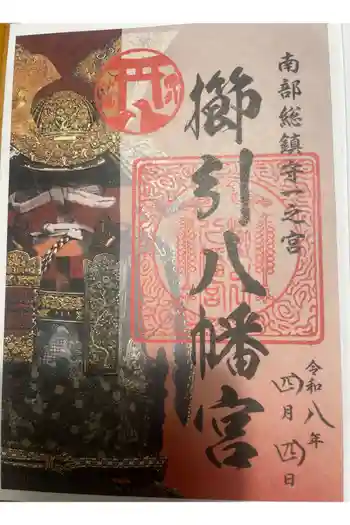 南部総鎮守一之宮
櫛引八幡宮
令和八年
四月四日